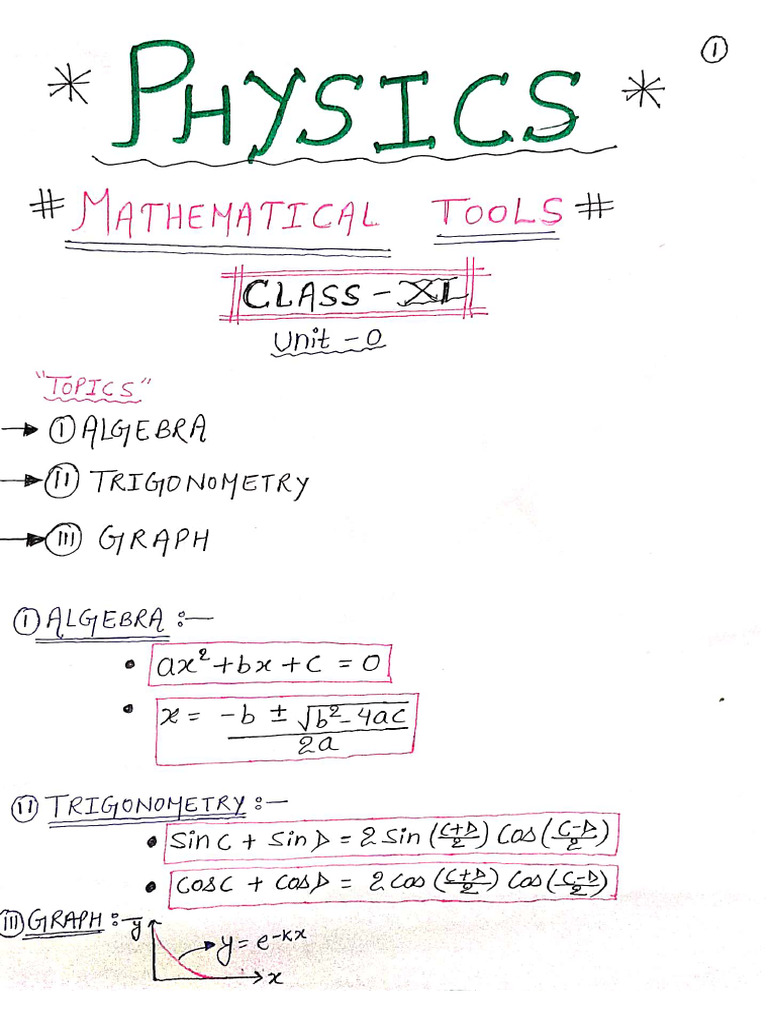 ①
* PHYSICS *
# MATHEMATICAL TOOLS #
CLASS - XI
Unit - 0
"TOPICS"
→ Ⓘ ALGEBRA
→ ⓘⓘ TRIGONOMETRY
→ ⓘⓘⓘ GRAPH
Ⓘ ALGEBRA :-
• ax² + bx + c = 0
• x = -b ± √b² - 4ac / 2a
ⓘⓘ TRIGONOMETRY :-
• Sin C + Sin D = 2 Sin (C+D/2) Cos (C-D/2)
• Cos C + Cos D = 2 Cos (C+D/2) Cos (C-D/2)
ⓘⓘⓘ GRAPH :- y
y = e^-kx
x